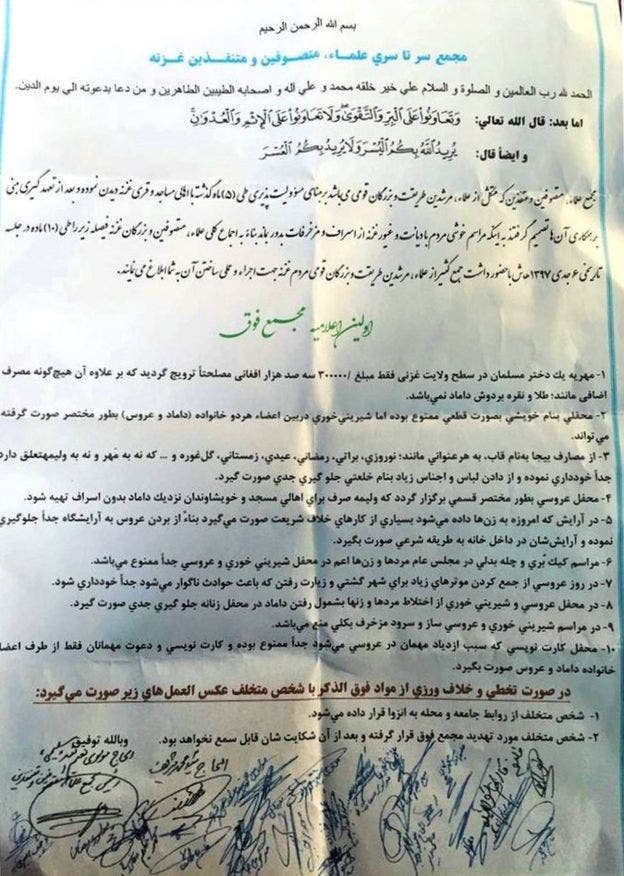 بسم الله الرحمن الرحيم
مجمع سر تا سري علماء، متصوفين و متنفذين غزنه
الحمد لله رب العالمين و الصلوة و السلام علي خير خلقه محمد و علي آله و اصحابه الطيبين الطاهرين و من دعا بدعوته الي يوم الدين.
اما بعد: قال الله تعالي: وَتَعَاوَنُواْ عَلَى الْبِرِّ وَالتَّقْوَى وَلاَ تَعَاوَنُواْ عَلَى الإِثْمِ وَالْعُدْوَانِ
و ايضاً قال: يُرِيدُ اللّهُ بِكُمُ الْيُسْرَ وَلاَ يُرِيدُ بِكُمُ الْعُسْرَ
مجمع علماء، متصوفين و متنفذين كه متشكل از علماء، مرشدين طريقت و بزرگان قومي مي‌باشد بر مبناي مسؤوليت پذيري طي (۵) ماه گذشته با اهالي مساجد و قري غزنه ديدن نموده و بعد از تعهد گيري مبني
بر همكاري آن‌ها تصميم گرفتند به اينكه مراسم خوشي مردم با ديانت و غيور غزنه از اسراف و مزخرفات بدور بماند بناءً به اجماع كلي علماء، متصوفين و بزرگان غزنه فيصله زير را طي (۱۰) ماده در جلسه
تاريخي ۶ جدي ۱۳۹۷ هـ‌ش با حضور داشت جمع كثير از علماء، مرشدين طريقت و بزرگان قومي مردم غزنه جهت اجراء و عملي ساختن آن به شما ابلاغ مي‌نمايند.
اولين اعلاميه مجمع فوق
۱- مهريه يك دختر مسلمان در سطح ولايت غزني فقط مبلغ /۳۰۰۰۰۰ سه صد هزار افغاني مصلحتاً ترويج گرديد كه بر علاوه آن هيچ‌گونه مصرف
اضافي مانند: طلا و نقره بردوش داماد نمي‌باشد.
۲- محفلي بنام خويشي بصورت قطعي ممنوع بوده اما شيريني‌خوري دربين اعضاء هردو خانواده (داماد و عروس) بطور مختصر صورت گرفته
مي‌تواند.
۳- از مصارف بيجا به‌نام قاب، به هرعنواني مانند؛ نوروزي، براتي، رمضاني، عيدي، زمستاني، گل‌غوره و ... كه نه به مَهر و نه به وليمه‎تعلق دارد
جداً خودداري نموده و از دادن لباس و اجناس زياد بنام خلعتي جلو گيري جدي صورت گيرد.
۴- محفل عروسي بطور مختصر قسمي برگزار گردد كه وليمه صرف براي اهالي مسجد و خويشاوندان نزديك داماد بدون اسراف تهيه شود.
۵- در آرايش كه امروزه به زن‌ها داده مي‌شود بسياري از كارهاي خلاف شريعت صورت مي‌گيرد بناءً از بردن عروس به آرايشگاه جداً جلوگيري
نموده و آرايش‌شان در داخل خانه به طريقه شرعي صورت بگيرد.
۶- مراسم كيك بُري و چله بدلي در مجلس عام مردها و زن‌ها اعم در محفل شيريني خوري و عروسي جداً ممنوع مي‌باشد.
۷- در روز عروسي از جمع كردن موترهاي زياد براي شهر گشتي و زيارت رفتن كه باعث حوادث ناگوار مي‌شود جداً خودداري شود.
۸- در محفل عروسي و شيريني خوري از اختلاط مردها و زنها بشمول رفتن داماد در محفل زنانه جلو گيري جدي صورت گيرد.
۹- در مراسم شيريني خوري و عروسي ساز و سرود مزخرف بكلي منع مي‌باشد.
۱۰- محفل كارت نويسي كه سبب ازدياد مهمان در عروسي مي‌شود جداً ممنوع بوده و كارت نويسي و دعوت مهمانان فقط از طرف اعضاء
خانواده داماد و عروس صورت بگيرد.
در صورت تخطي و خلاف ورزي از مواد فوق الذكر با شخص متخلف عكس العمل‌هاي زير صورت مي‌گيرد:
۱- شخص متخلف از روابط جامعه و محله به انزوا قرار داده مي‌شود.
۲- شخص متخلف مورد تهديد مجمع فوق قرار گرفته و بعد از آن شكايت شان قابل سمع نخواهد بود. وبالله توفيق